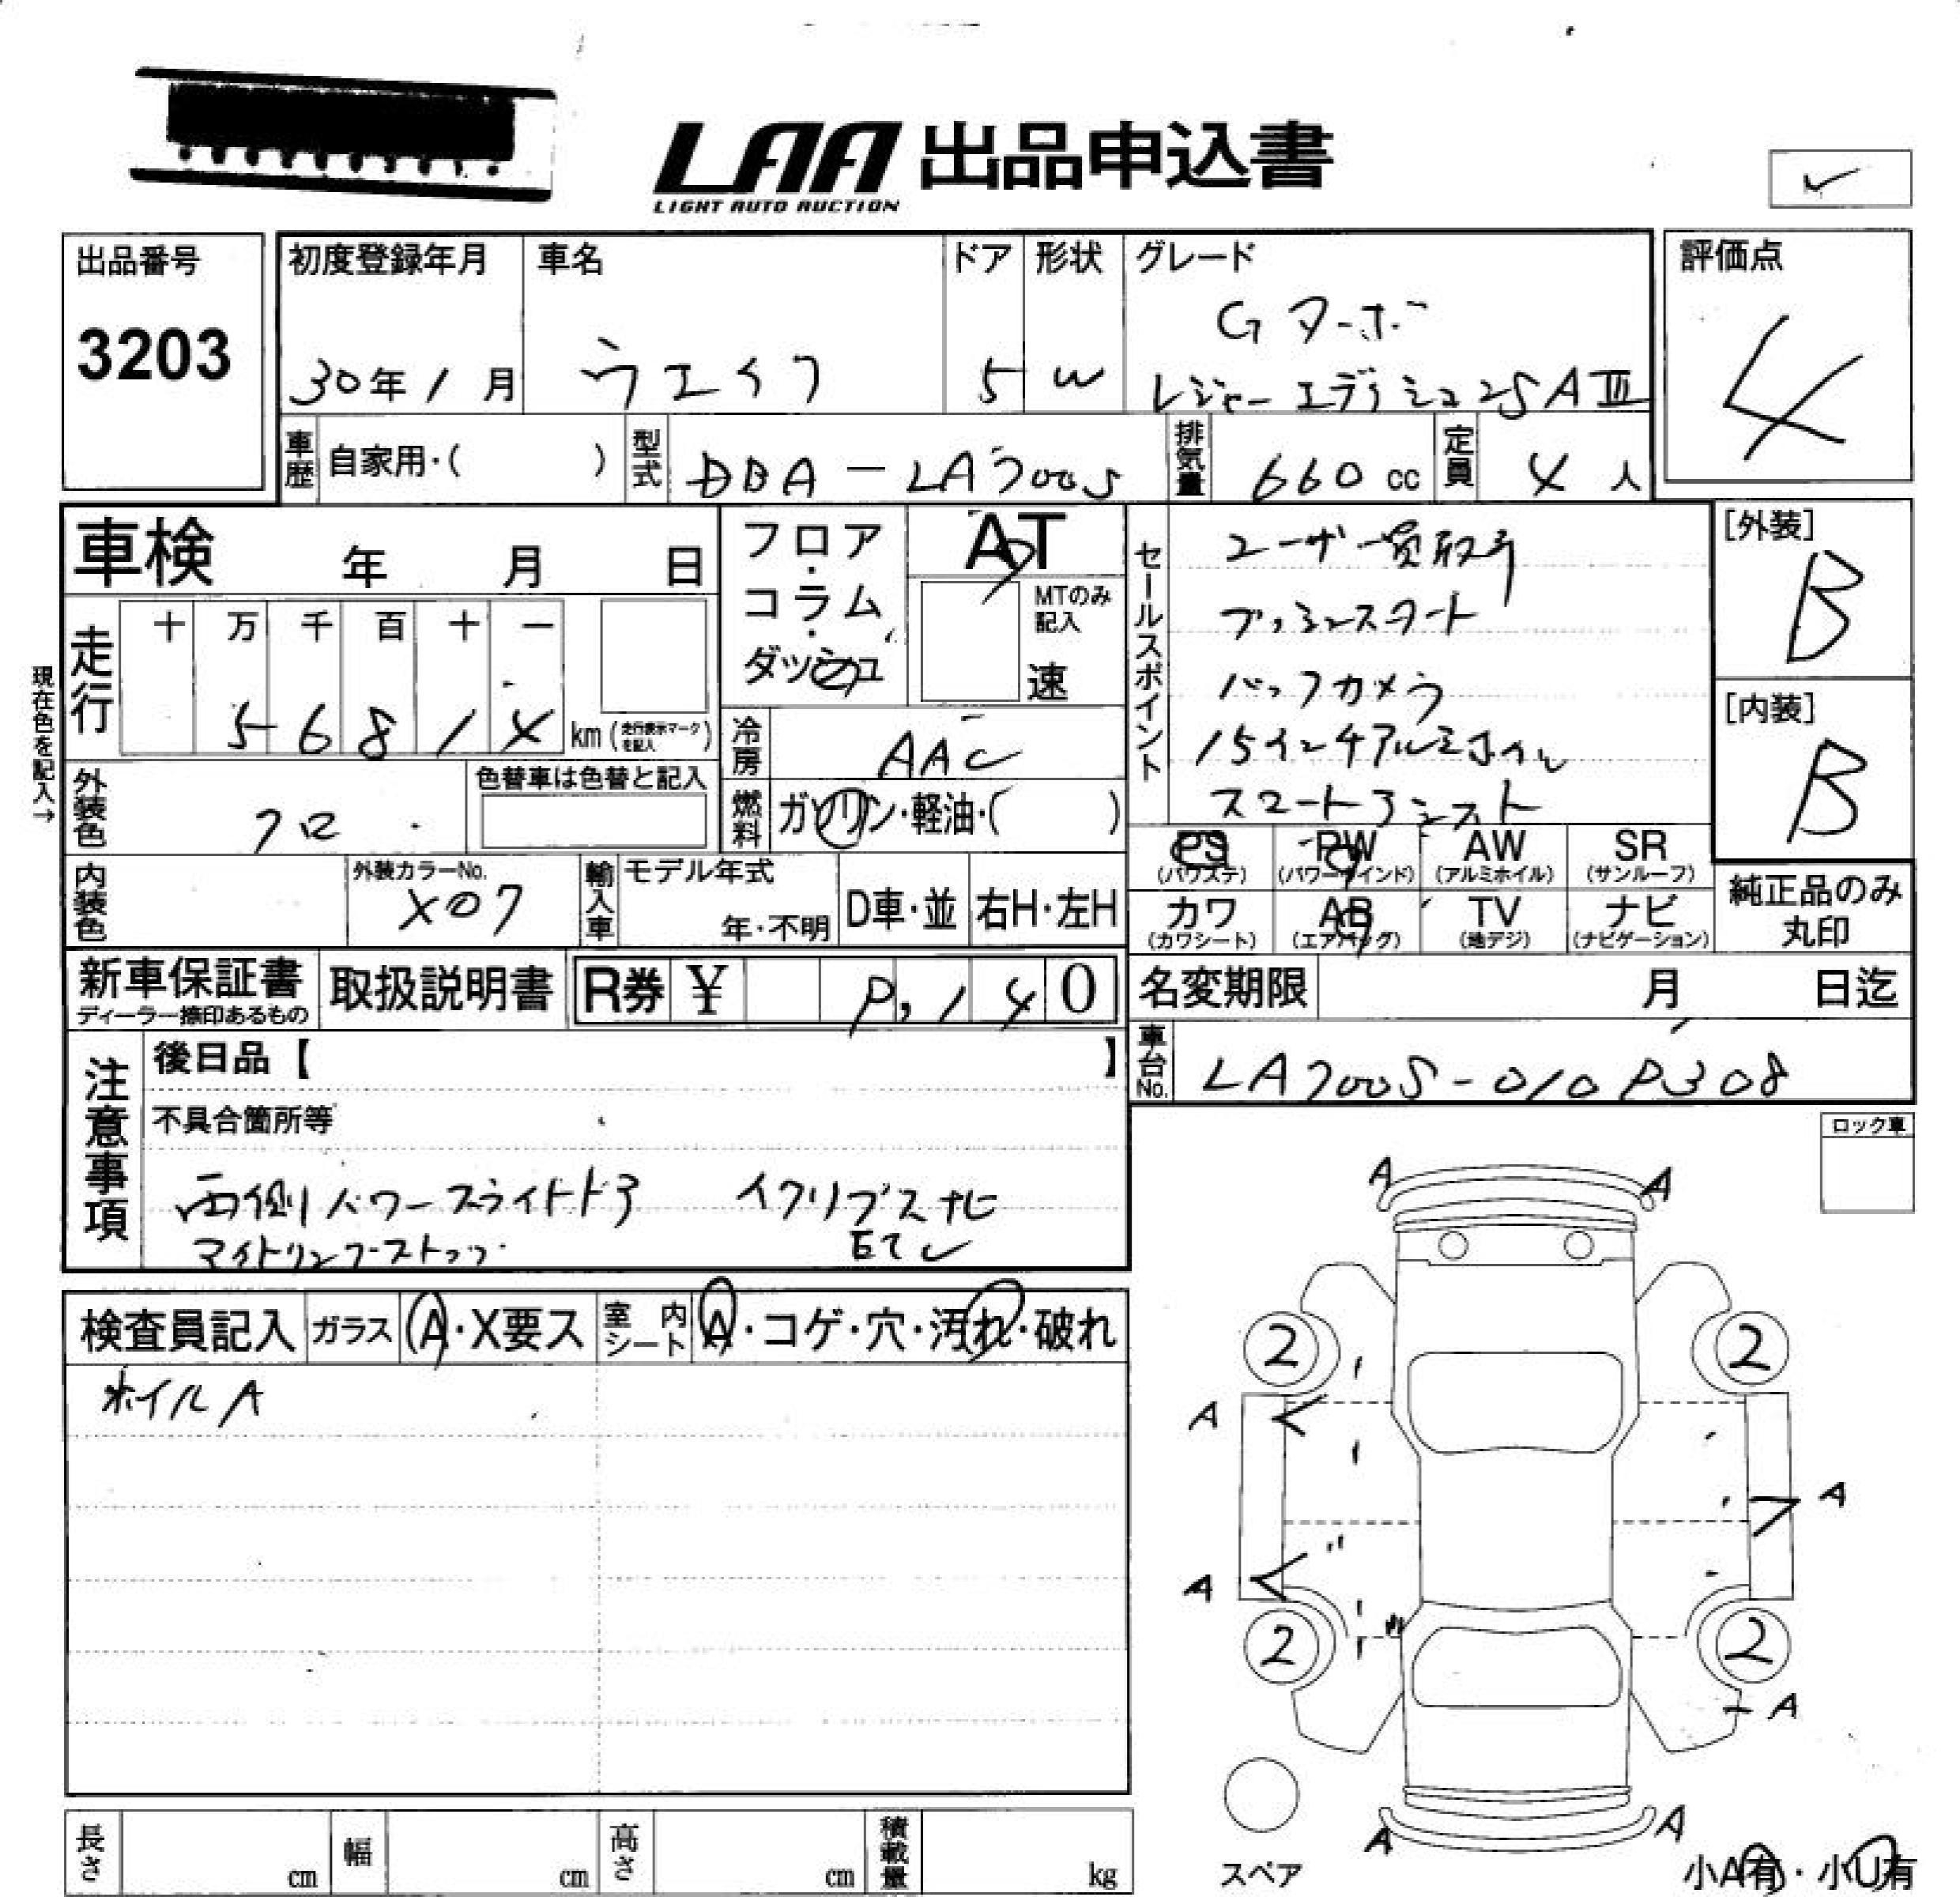 LAA 出品申込書
LIGHT AUTO AUCTION
出品番号
3203
初度登録年月
30年1月
車名
ウエイク
ドア
5
形状
W
グレード
Gターボ
レジャーエディションSAⅢ
評価点
4
車歴 自家用・( )
型式 DBA-LA700S
排気量 660 cc
定員 4 人
車検 年 月 日
フロア・コラム・ダッシュ
AT
MTのみ記入
速
現在色を記入→
走行 十 万 千 百 十 一
5 6 8 1 4 km (走行表示マークを記入)
冷房 AAC
外装色 クロ
色替車は色替と記入
燃料 ガソリン・軽油・( )
内装色
外装カラーNo.
X07
輸入車 モデル年式
年・不明
D車・並
右H・左H
セールスポイント
ユーザー買取車
プッシュスタート
バックカメラ
15インチアルミホイル
スマートアシスト
[外装]
B
[内装]
B
PS (パワステ)
PW (パワーウインド)
AW (アルミホイル)
SR (サンルーフ)
カワ (カワシート)
AB (エアバッグ)
TV (地デジ)
ナビ (ナビゲーション)
純正品のみ丸印
新車保証書
ディーラー捺印あるもの
取扱説明書
R券 ¥ 140
名変期限 月 日迄
車台No.
注意事項
後日品【 】
不具合箇所等
両側パワースライドドア イクリプスナビ
アイドリングストップ ETC
ロック車
検査員記入
ガラス A・X要ス
室内シート A・コゲ・穴・汚れ・破れ
ホイルA
A A
2 2
A
A
A
2 2
A
A A
スペア
小A有・小U有
長さ cm
幅 cm
高さ cm
積載量 kg